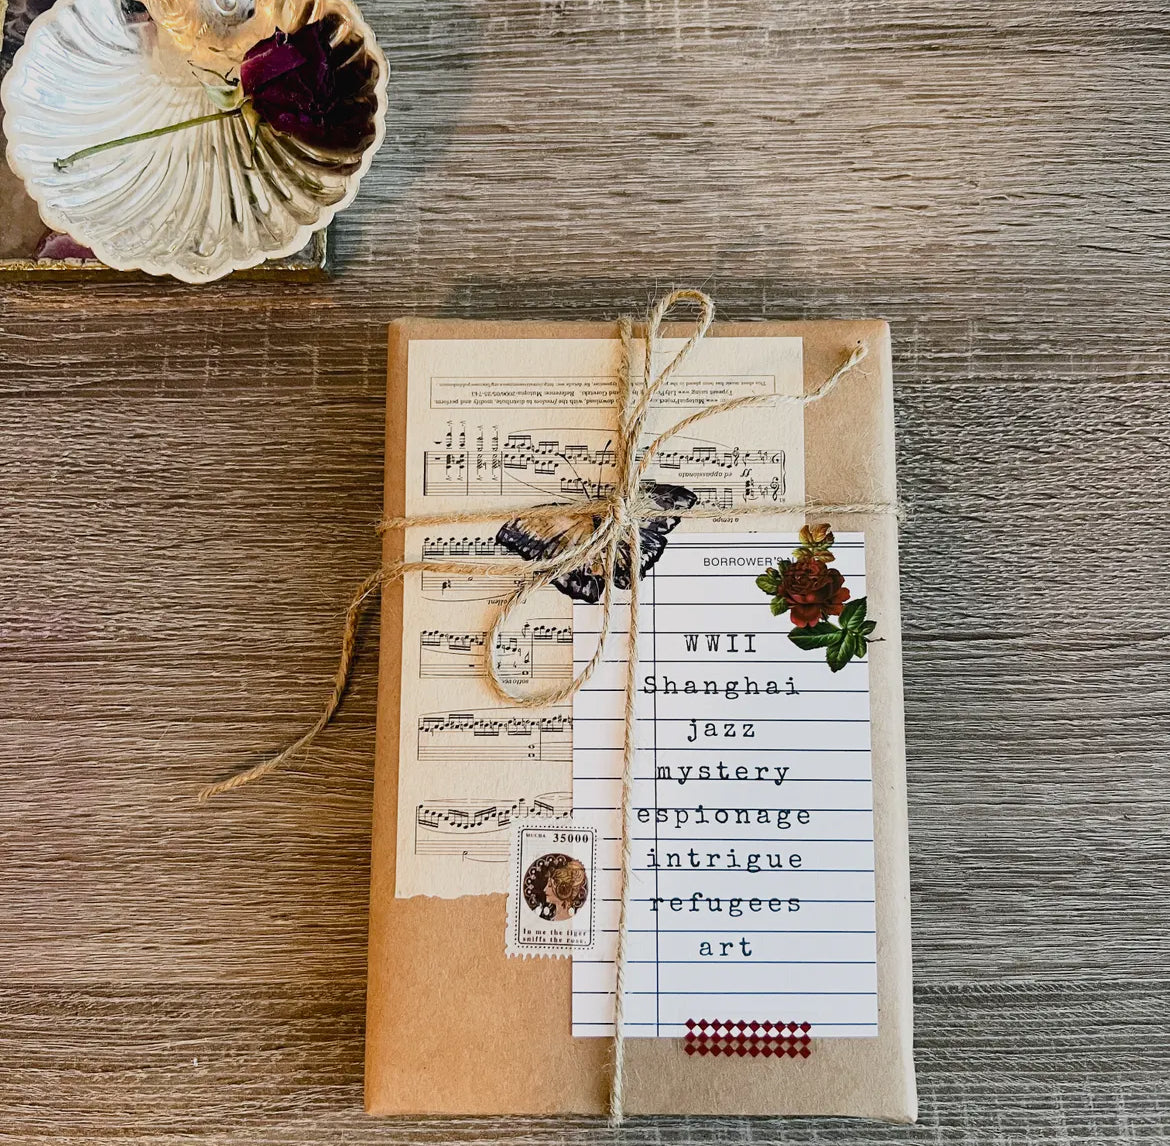 BORROWER'S N
WWII
Shanghai
jazz
mystery
espionage
intrigue
refugees
art
MUCHA 35000
In me the tiger
sniffs the rose.
ed appassionato
a tempo
sotto voce